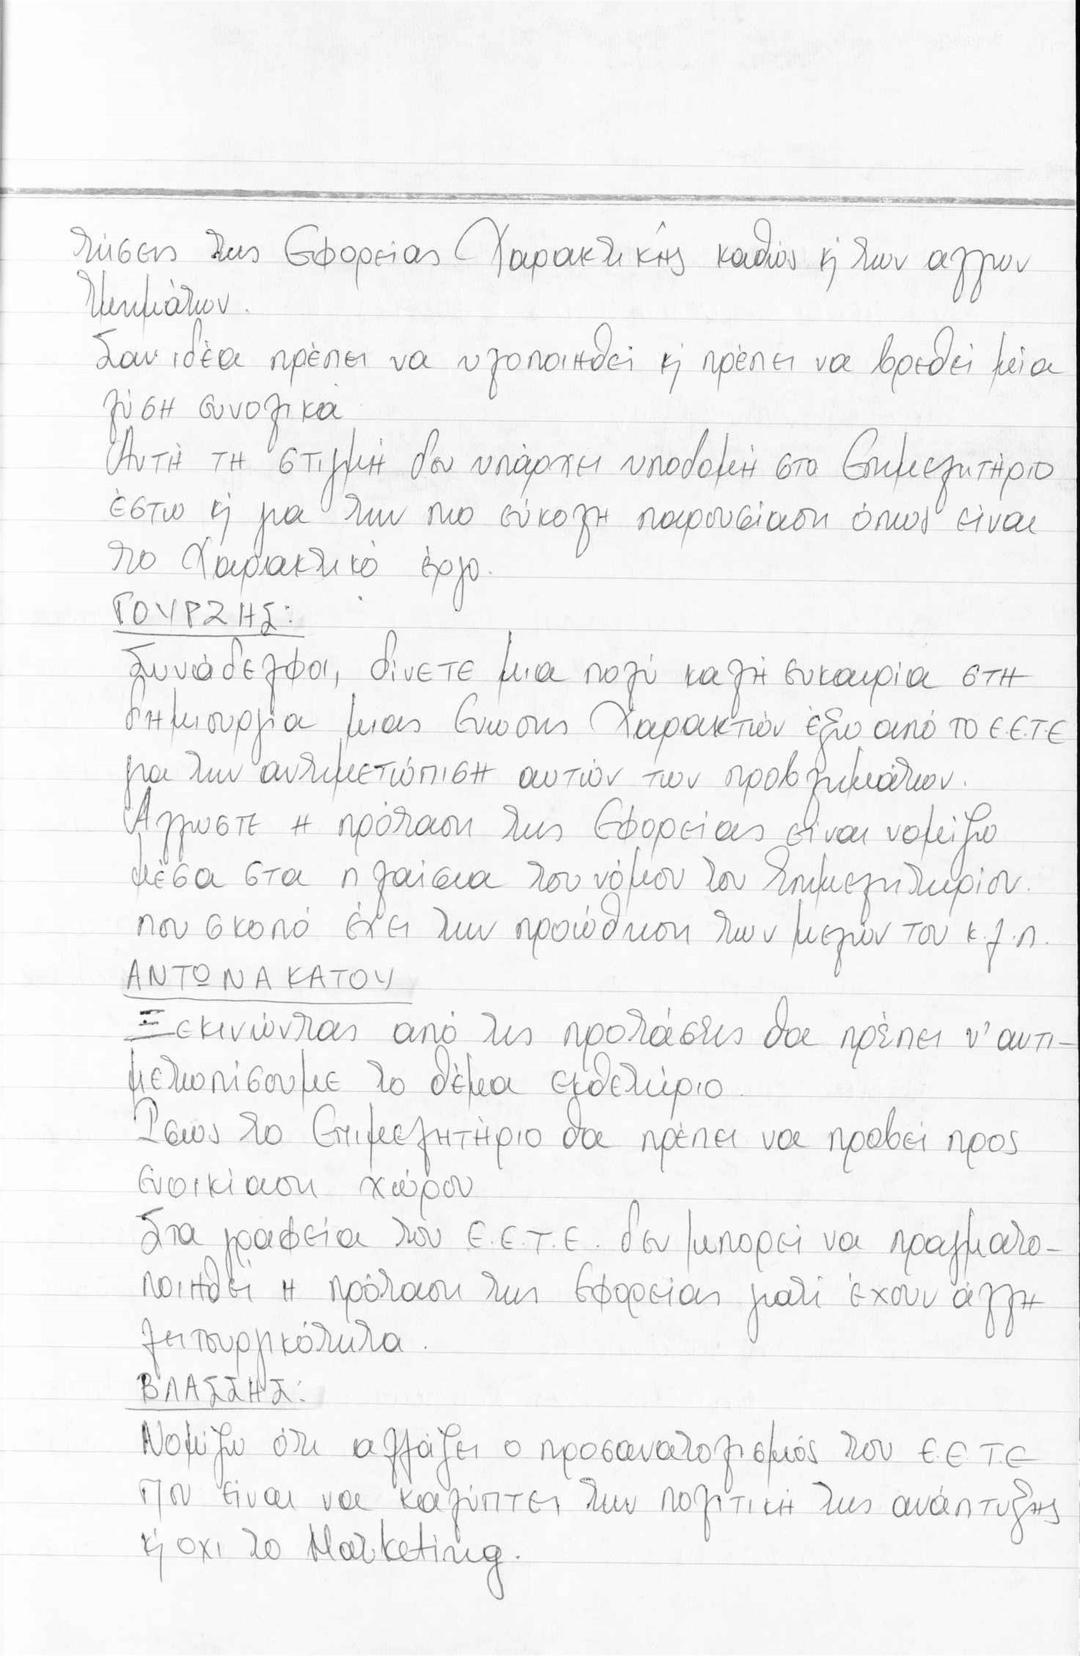 τήσεις της Εφορείας Χαρακτικής καθώς ή των άλλων
τμημάτων.
Σαν ιδέα πρέπει να υλοποιηθεί ή πρέπει να βρεθεί μεία
λύση συνολικά
Αυτή τη στιγμή δεν υπάρχει υποδομή στο Επιμελητήριο
έστω ή για την πιο εύκολη παρουσίαση όπως είναι
το Χαρακτικό έργο.
ΓΟΥΡΖΗΣ:
Συνάδελφοι, δίνετε μια πολύ καλή ευκαιρία στη
δημιουργία μιας Ένωσης Χαρακτών έξω από το Ε.Ε.Τ.Ε
για την αντιμετώπιση αυτών των προβλημάτων.
Άλλωστε η πρόταση της Εφορείας είναι νομείζω
μέσα στα πλαίσια του νόμου του Επιμελητηρίου.
που σκοπό έχει την προώθηση των μελών του κ.λ.π.
ΑΝΤΩΝΑΚΑΤΟΥ
Ξεκινώντας από τις προτάσεις θα πρέπει ν' αντι-
μετωπίσουμε το θέμα εχθετήριο.
Ίσως το Επιμελητήριο θα πρέπει να προβεί προς
ενοικίαση χώρου
Στα γραφεία του Ε.Ε.Τ.Ε. δεν μπορεί να πραγματο-
ποιηθεί η πρόταση της Εφορείας γιατί έχουν άλλη
λειτουργικότητα.
ΒΛΑΣΣΗΣ:
Νομίζω ότι αλλάζει ο προσανατολισμός του Ε.Ε.Τ.Ε
που είναι να καλύπτει την πολιτική της ανάπτυξης
ή οχι το Marketing.